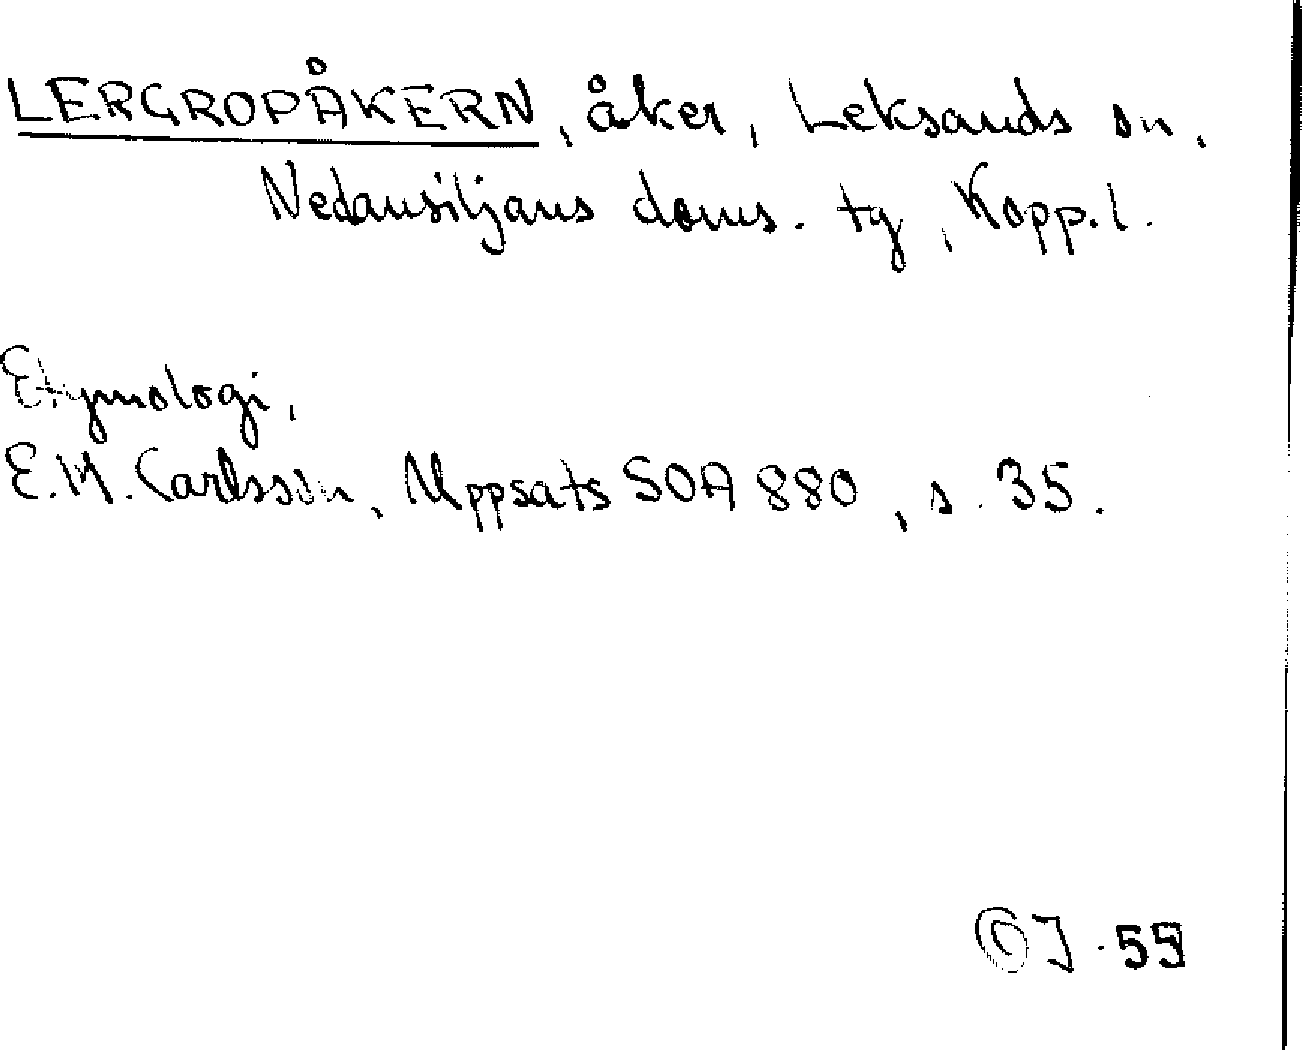 LERGROPÅKERN, åker, Leksands sn,
Nedansiljans doms. tg, Kopp. l.
Etymologi,
E.M. Carlsson, Uppsats SOA 880, s. 35.